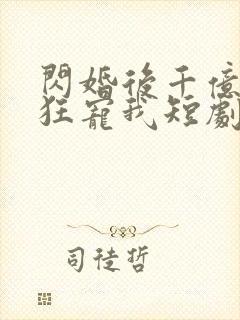 閃婚後千億
狂寵我短劇
司徒哲